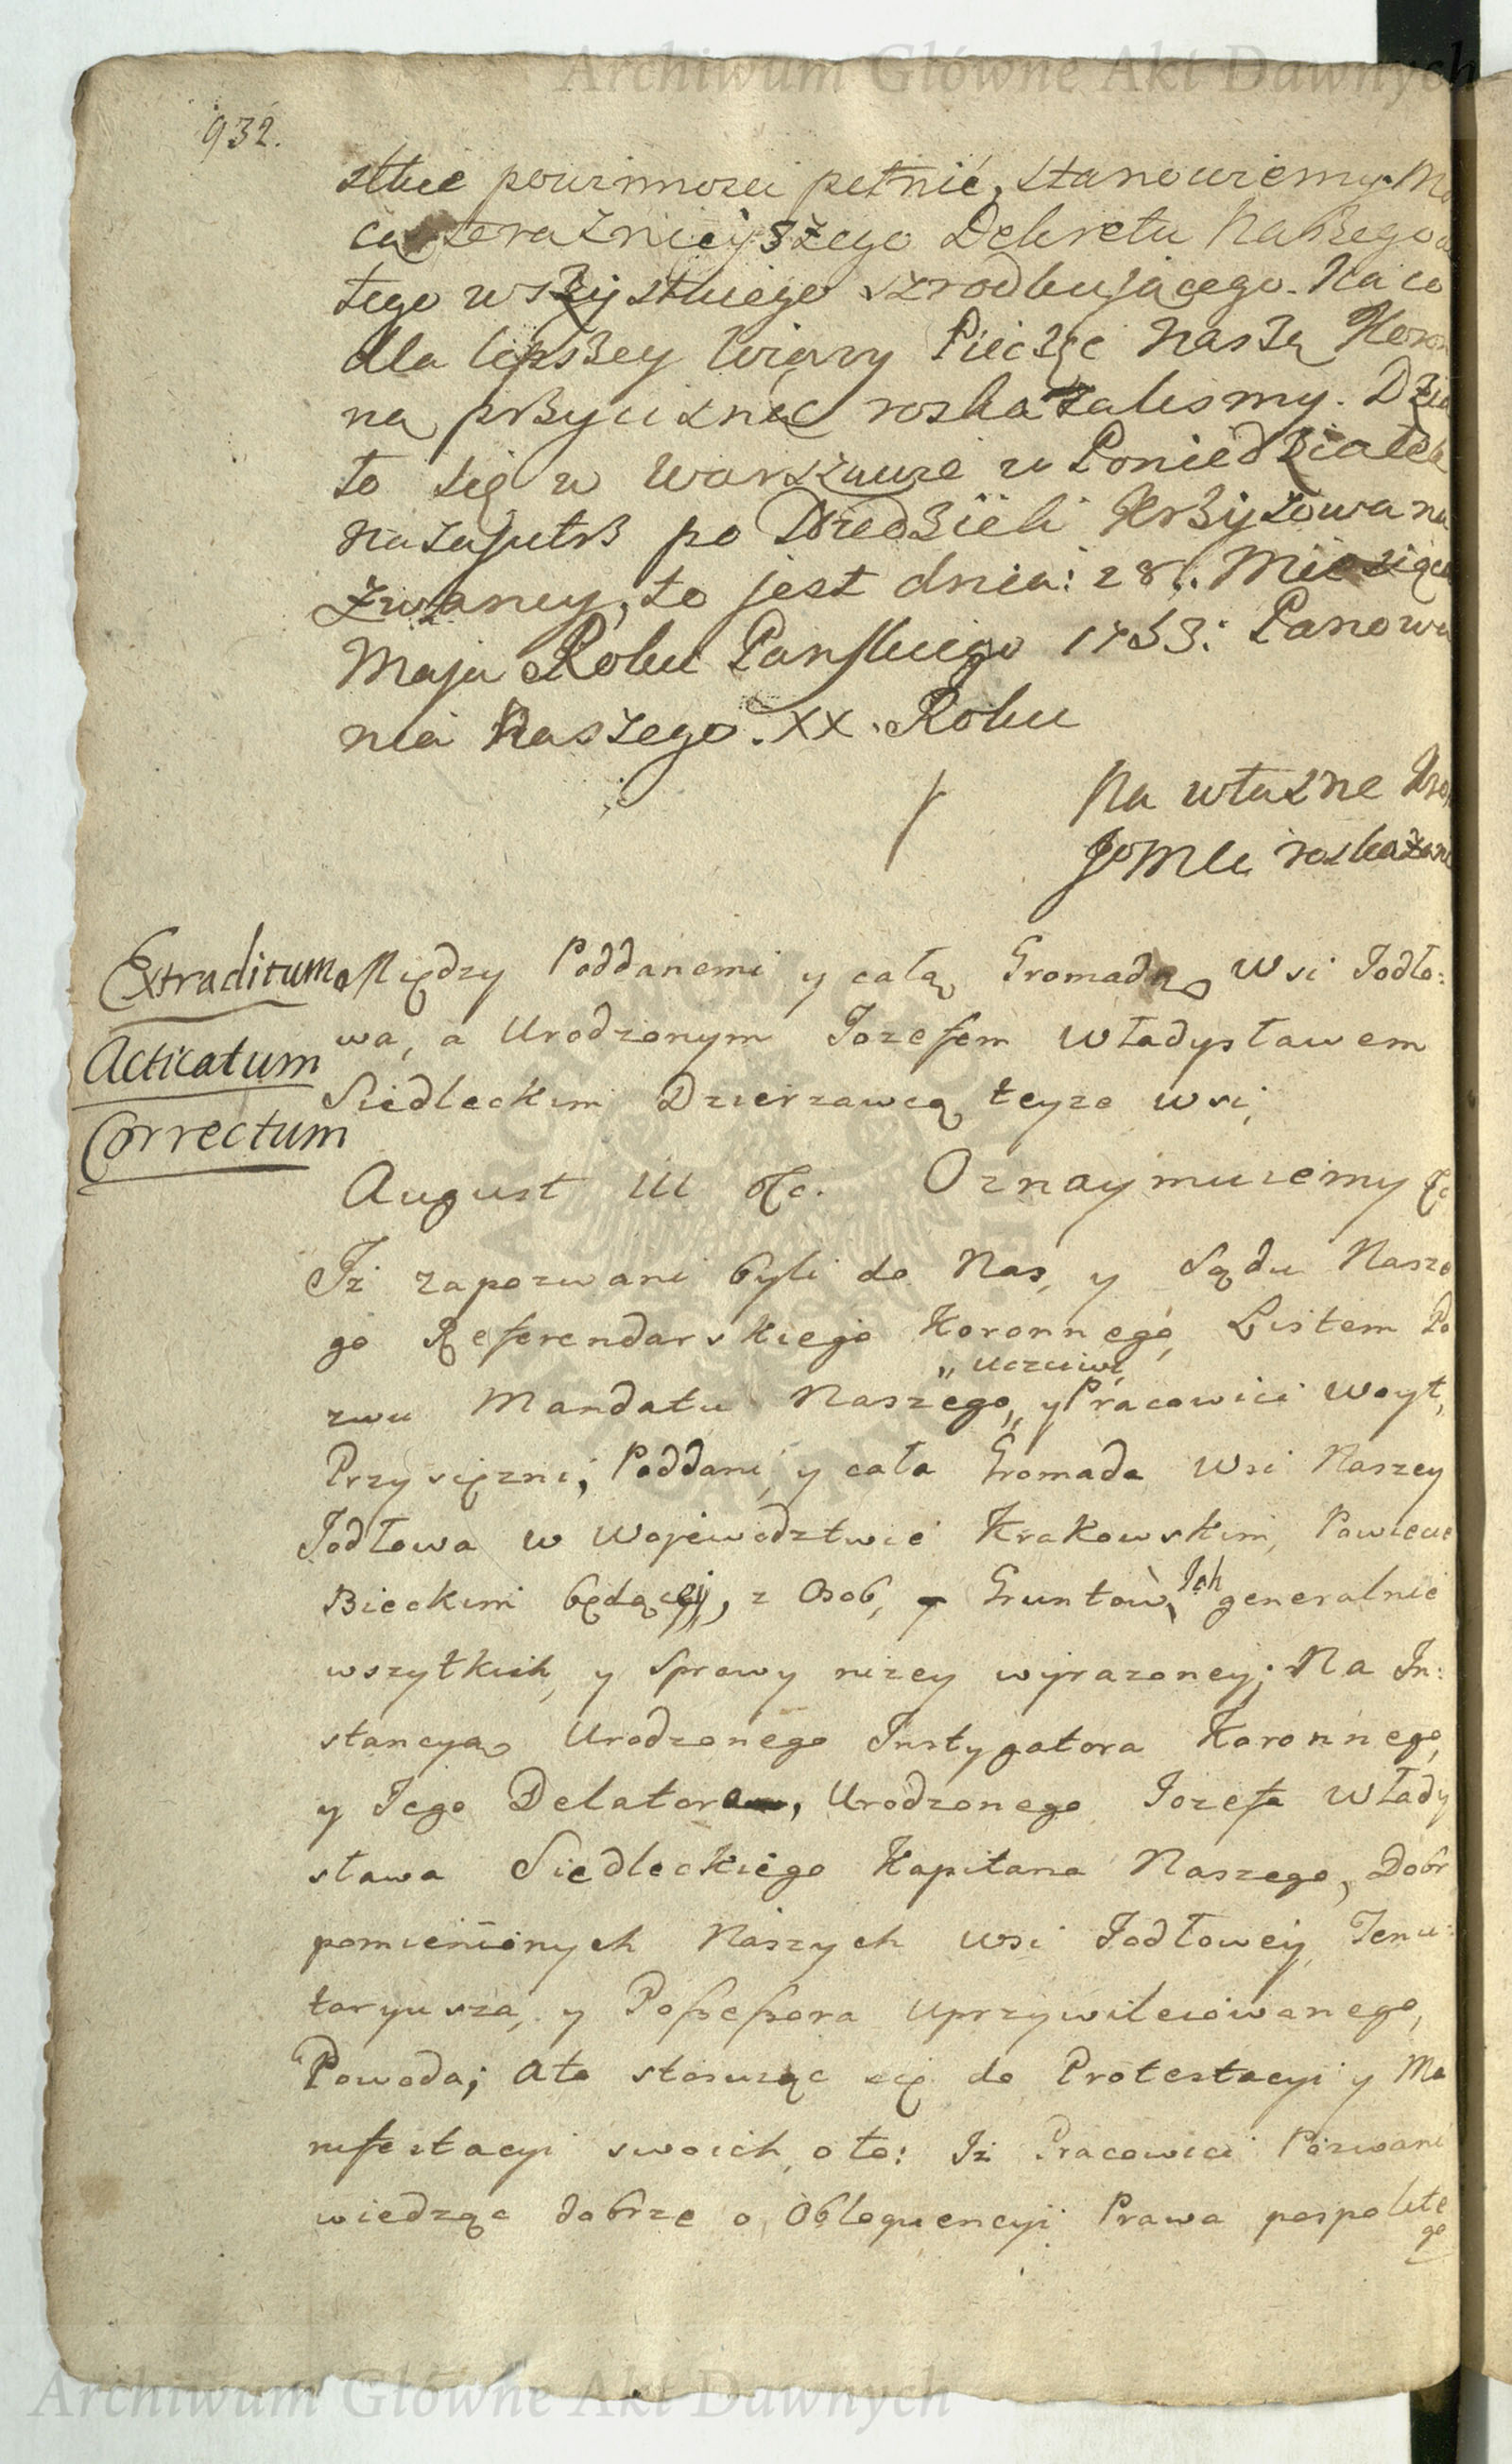 Archiwum Główne Akt Dawnych
932.
stkie powinnosci pełnić, stanowiemy. Mo
cą teraznieyszego Dekretu Naszego
tego wszystkiego szrodkującego. Na co
dla lepszey Wiary Pieczęć Naszą Koron
ną przycisnąć roskazalismy. Dzia
ło się w Warszawie w Poniedziałek
nazajutrz po Niedzieli Krzyżowa na
zwaney, to jest dnia: 28. Miesiąca
Maja Roku Panskiego 1753: Panowa
nia Naszego. XX. Roku
Na własne Kro
JoMci roskazani
Extraditum
Acticatum
Correctum
Między Poddanemi y całą Gromadą Wsi Jodło:
wa, a Urodzonym Jozefem Władysławem
Siedleckim Dzierzawcą teyze wsi,
August III &c. Oznaymuiemy &c
Iż zapozwani byli do Nas, y Sądu Nasze
go Referendarskiego Koronnego, Listem Po
zwu Mandatu Naszego, " uczciwi, y Pracowici Woyt,
Przysięzni, Poddani, y cała Gromada Wsi Naszey
Jodłowa w Wojewodztwie Krakowskim, Powiecie
Bieckim będącej, z Osob, y Gruntow Ich generalnie
wszytkich, y sprawy nizey wyrazoney; Na In:
stancyą Urodzonego Instygatora Koronnego,
y Jego Delatora, Urodzonego Jozefa Włady
sława Siedleckiego Kapitana Naszego, Dobr
pomienionych Naszych wsi Jodłowey Tenu:
taryusza, y Possessora uprzywileiowanego,
Powoda; Ato stosuiąc się do Protestacyi y Ma
nifestacyi swoich, o to: Iż Pracowici Pozwani
wiedząc dobrze o Obloquencyi Prawa pospolite
go
Archiwum Główne Akt Dawnych